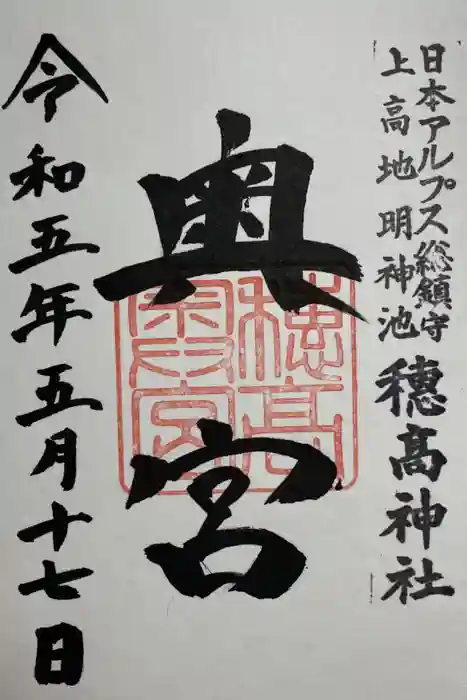 日本アルプス総鎮守
上高地明神池
穗髙神社
奥宮
令和五年五月十七日
穂高
奥宮